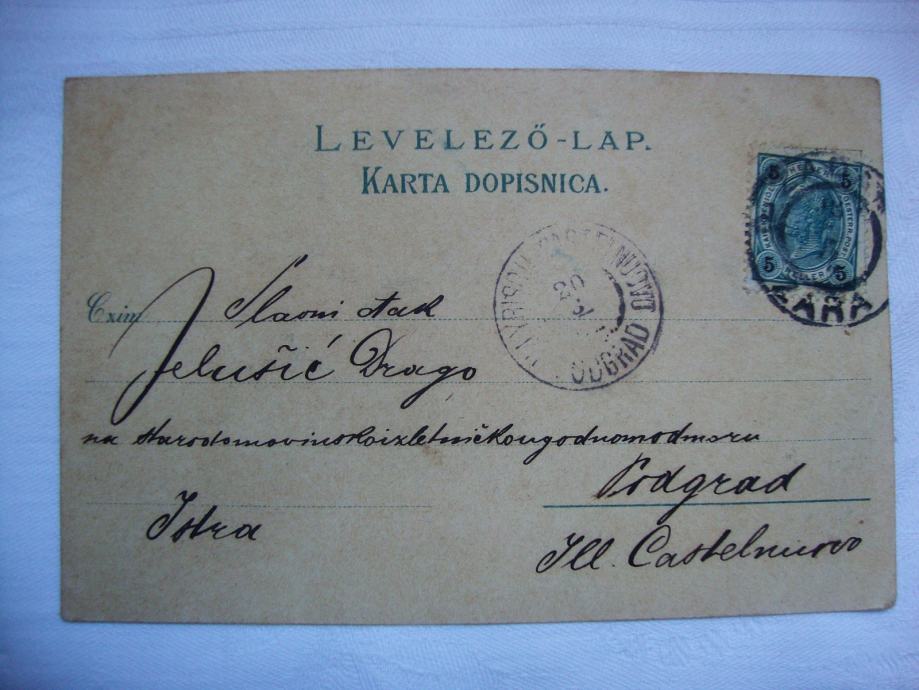 LEVELEZŐ-LAP.
KARTA DOPISNICA.
5 HELLER 5
5 HELLER 5
ZARA
CASTELNUOVO
PODGRAD
Czim
Slavni
Jelušić Drago
na starodomovinskoizletničkougodnomodmoru
Podgrad
Istra
Ill. Castelnuovo